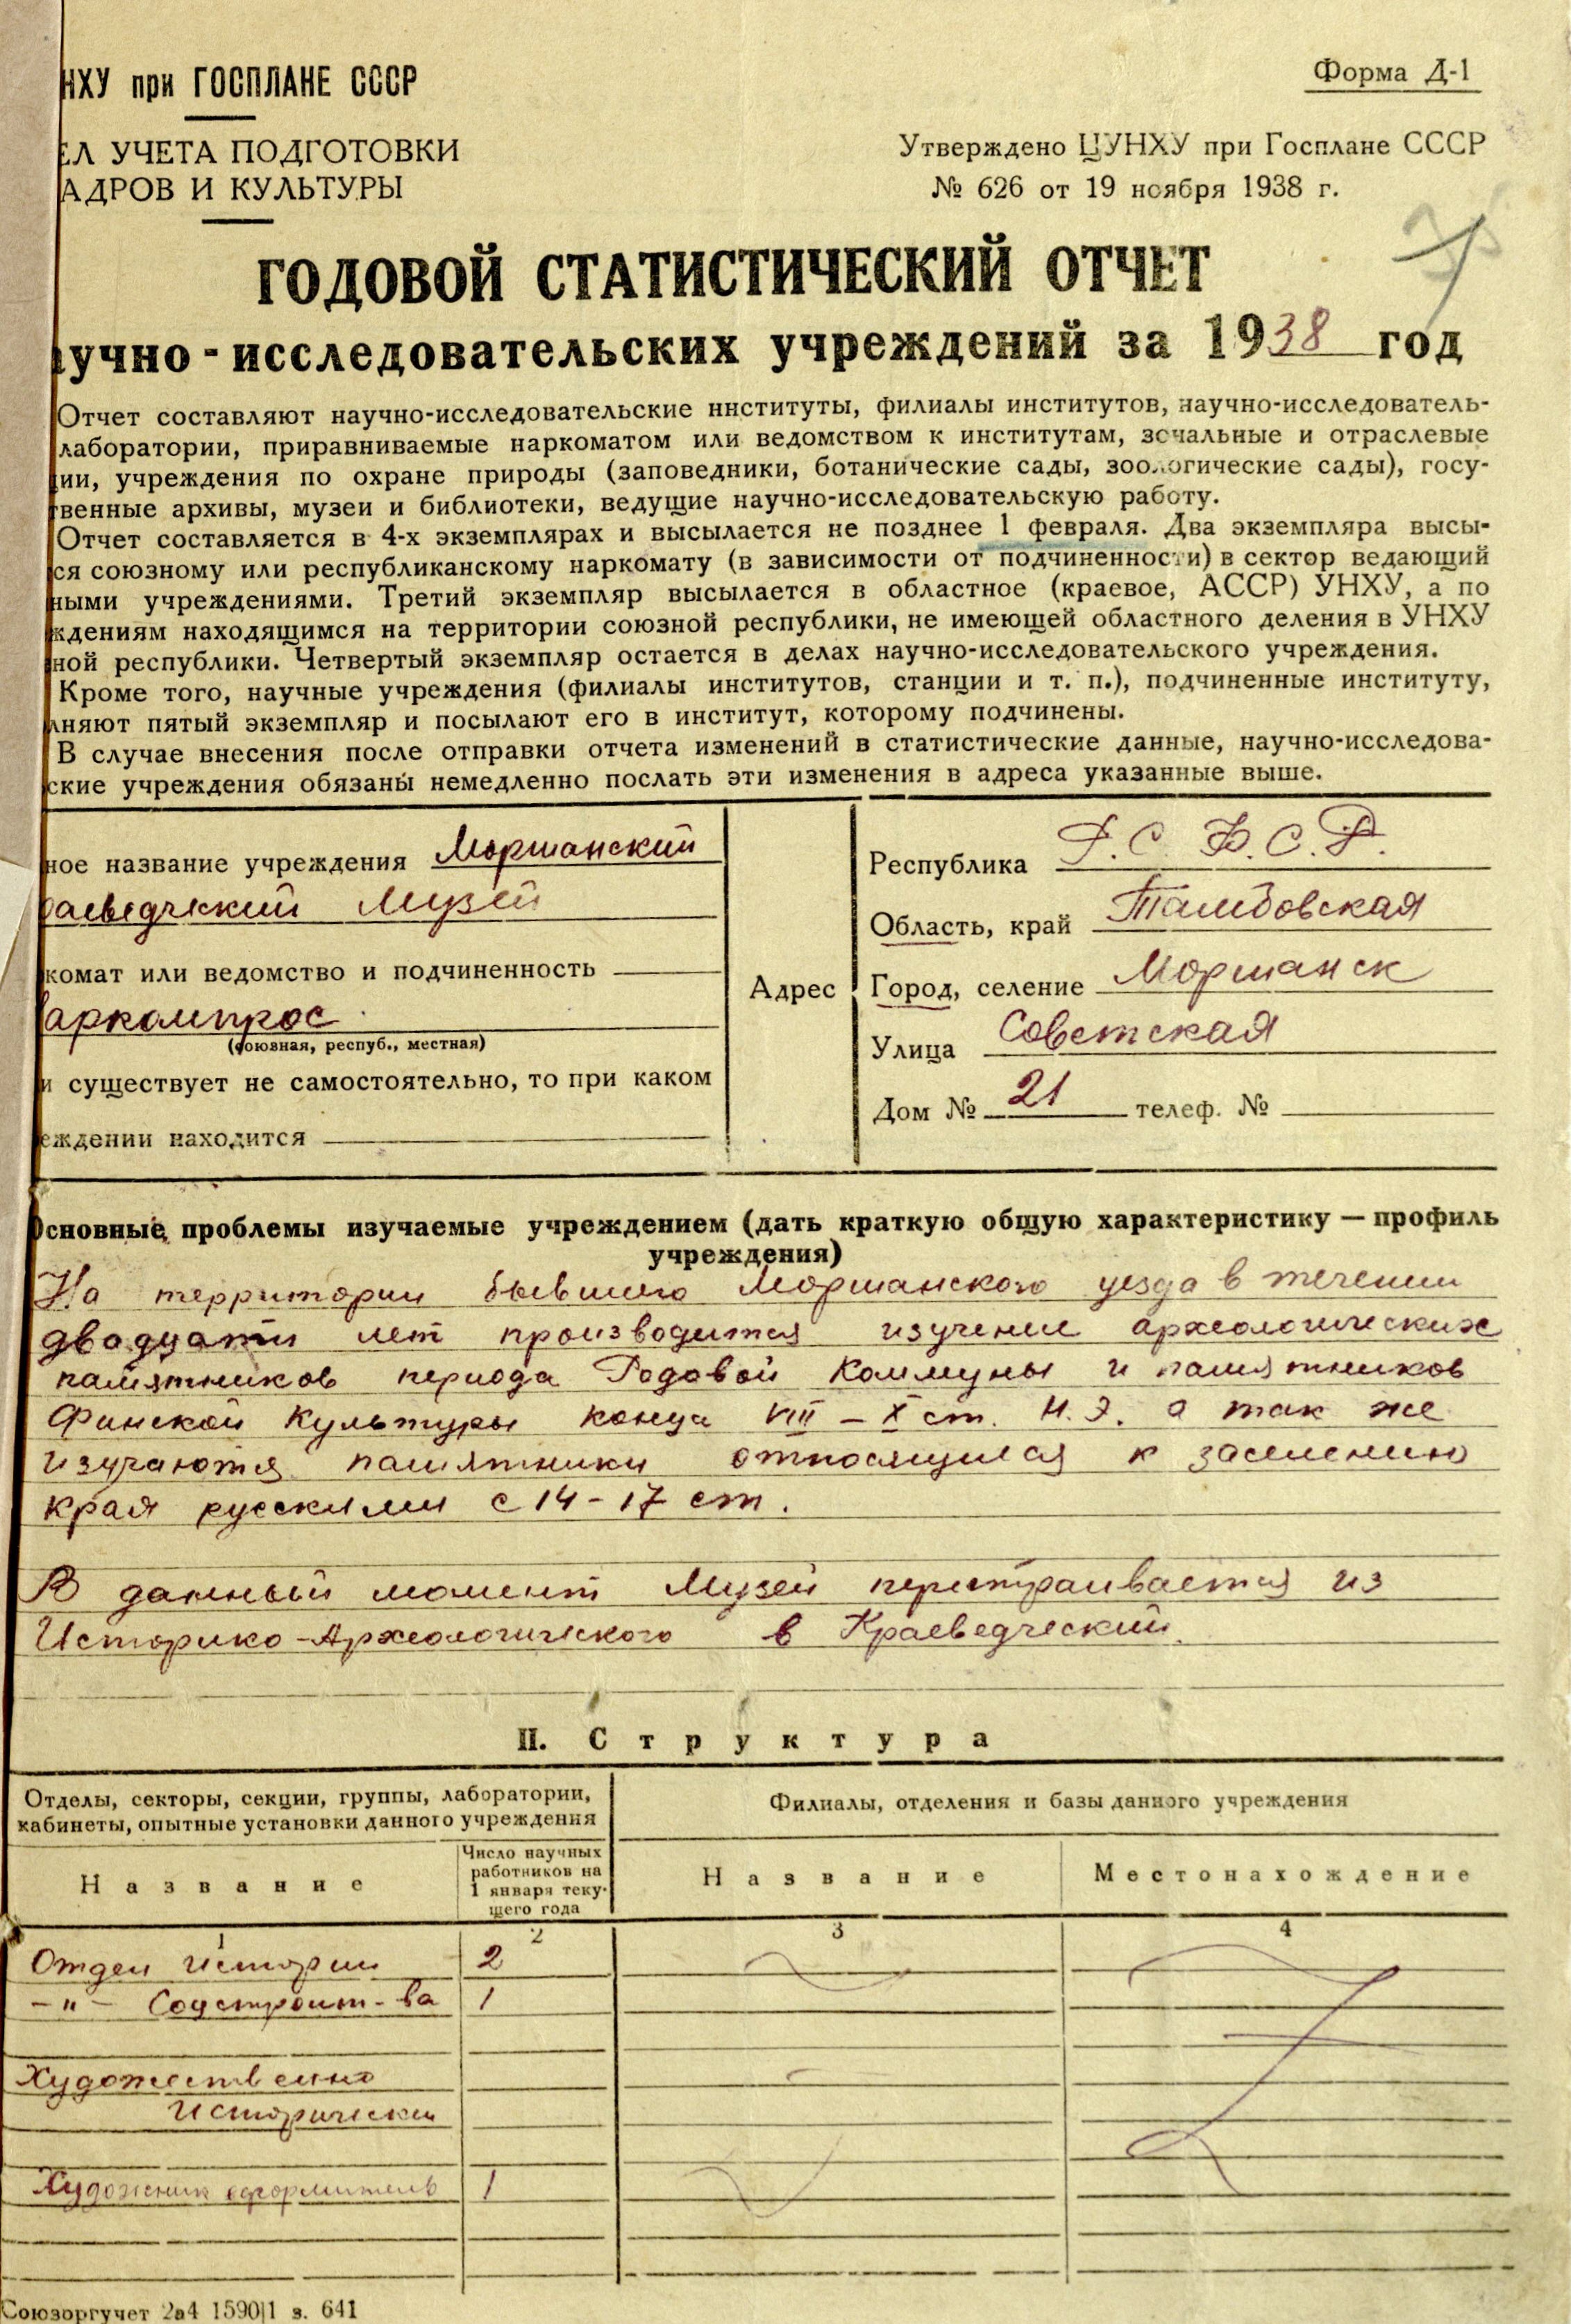 НХУ при ГОСПЛАНЕ СССР
ЕЛ УЧЕТА ПОДГОТОВКИ
АДРОВ И КУЛЬТУРЫ
Форма Д-1
Утверждено ЦУНХУ при Госплане СССР
№ 626 от 19 ноября 1938 г.
ГОДОВОЙ СТАТИСТИЧЕСКИЙ ОТЧЕТ
учно-исследовательских учреждений за 1938 год
Отчет составляют научно-исследовательские институты, филиалы институтов, научно-исследователь-
лаборатории, приравниваемые наркоматом или ведомством к институтам, зональные и отраслевые
ии, учреждения по охране природы (заповедники, ботанические сады, зоологические сады), госу-
твенные архивы, музеи и библиотеки, ведущие научно-исследовательскую работу.
Отчет составляется в 4-х экземплярах и высылается не позднее 1 февраля. Два экземпляра высы-
ся союзному или республиканскому наркомату (в зависимости от подчиненности) в сектор ведающий
ными учреждениями. Третий экземпляр высылается в областное (краевое, АССР) УНХУ, а по
ждениям находящимся на территории союзной республики, не имеющей областного деления в УНХУ
ной республики. Четвертый экземпляр остается в делах научно-исследовательского учреждения.
Кроме того, научные учреждения (филиалы институтов, станции и т. п.), подчиненные институту,
лняют пятый экземпляр и посылают его в институт, которому подчинены.
В случае внесения после отправки отчета изменений в статистические данные, научно-исследова-
ские учреждения обязаны немедленно послать эти изменения в адреса указанные выше.
ное название учреждения Моршанский
раеведческий Музей
комат или ведомство и подчиненность
аркомпрос
(союзная, респуб., местная)
и существует не самостоятельно, то при каком
еждении находится
Адрес
Республика Р.С.Ф.С.Р.
Область, край Тамбовская
Город, селение Моршанск
Улица Советская
Дом № 21 телеф. №
Основные проблемы изучаемые учреждением (дать краткую общую характеристику — профиль
учреждения)
На территории бывшего Моршанского уезда в течении
двадцати лет производится изучение археологических
памятников периода Родовой Коммуны и памятников
Финской Культуры конца VIII – X ст. Н. Э. а так же
изучаются памятники относящиеся к заселению
края русскими с 14 - 17 ст.
В данный момент Музей перестраивается из
Историко-Археологического в Краеведческий.
II. Структура
Отделы, секторы, секции, группы, лаборатории,
кабинеты, опытные установки данного учреждения
Филиалы, отделения и базы данного учреждения
Название
Число научных
работников на
1 января теку-
щего года
Название
Местонахождение
1 2 3 4
Отдел истории 2
-"- Соцстроит-ва 1
Художественно
Исторический
Художник оформитель 1
Союзоргучет 2а4 1590|1 з. 641